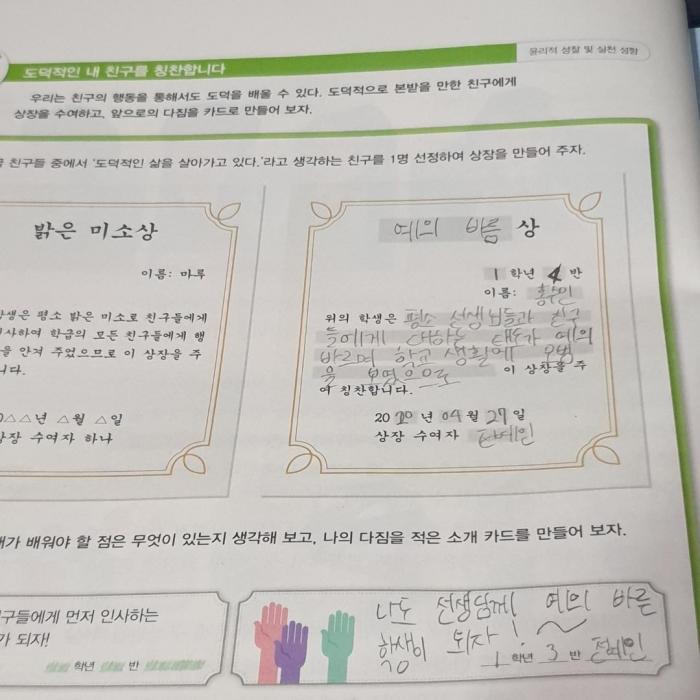 도덕적인 내 친구를 칭찬합니다
윤리적 성찰 및 실천 성향
우리는 친구의 행동을 통해서도 도덕을 배울 수 있다. 도덕적으로 본받을 만한 친구에게
상장을 수여하고, 앞으로의 다짐을 카드로 만들어 보자.
친구들 중에서 '도덕적인 삶을 살아가고 있다.'라고 생각하는 친구를 1명 선정하여 상장을 만들어 주자.
밝은 미소상
이름: 마루
학생은 평소 밝은 미소로 친구들에게
사하여 학급의 모든 친구들에게 행
을 안겨 주었으므로 이 상장을 주
니다.
△△년 △월 △일
상장 수여자 하나
예의 바름 상
1 학년 4 반
이름: 홍수민
위의 학생은 평소 선생님들과 친구
들에게 대하는 태도가 예의
바르며 학교 생활에 모범
을 보였으므로 이 상장을 주
어 칭찬합니다.
2020년 04월 27일
상장 수여자 전예인
배워야 할 점은 무엇이 있는지 생각해 보고, 나의 다짐을 적은 소개 카드를 만들어 보자.
구들에게 먼저 인사하는
가 되자!
학년 반
나도 선생님께! 예의 바른
학생이 되자!
1 학년 3 반 전예인